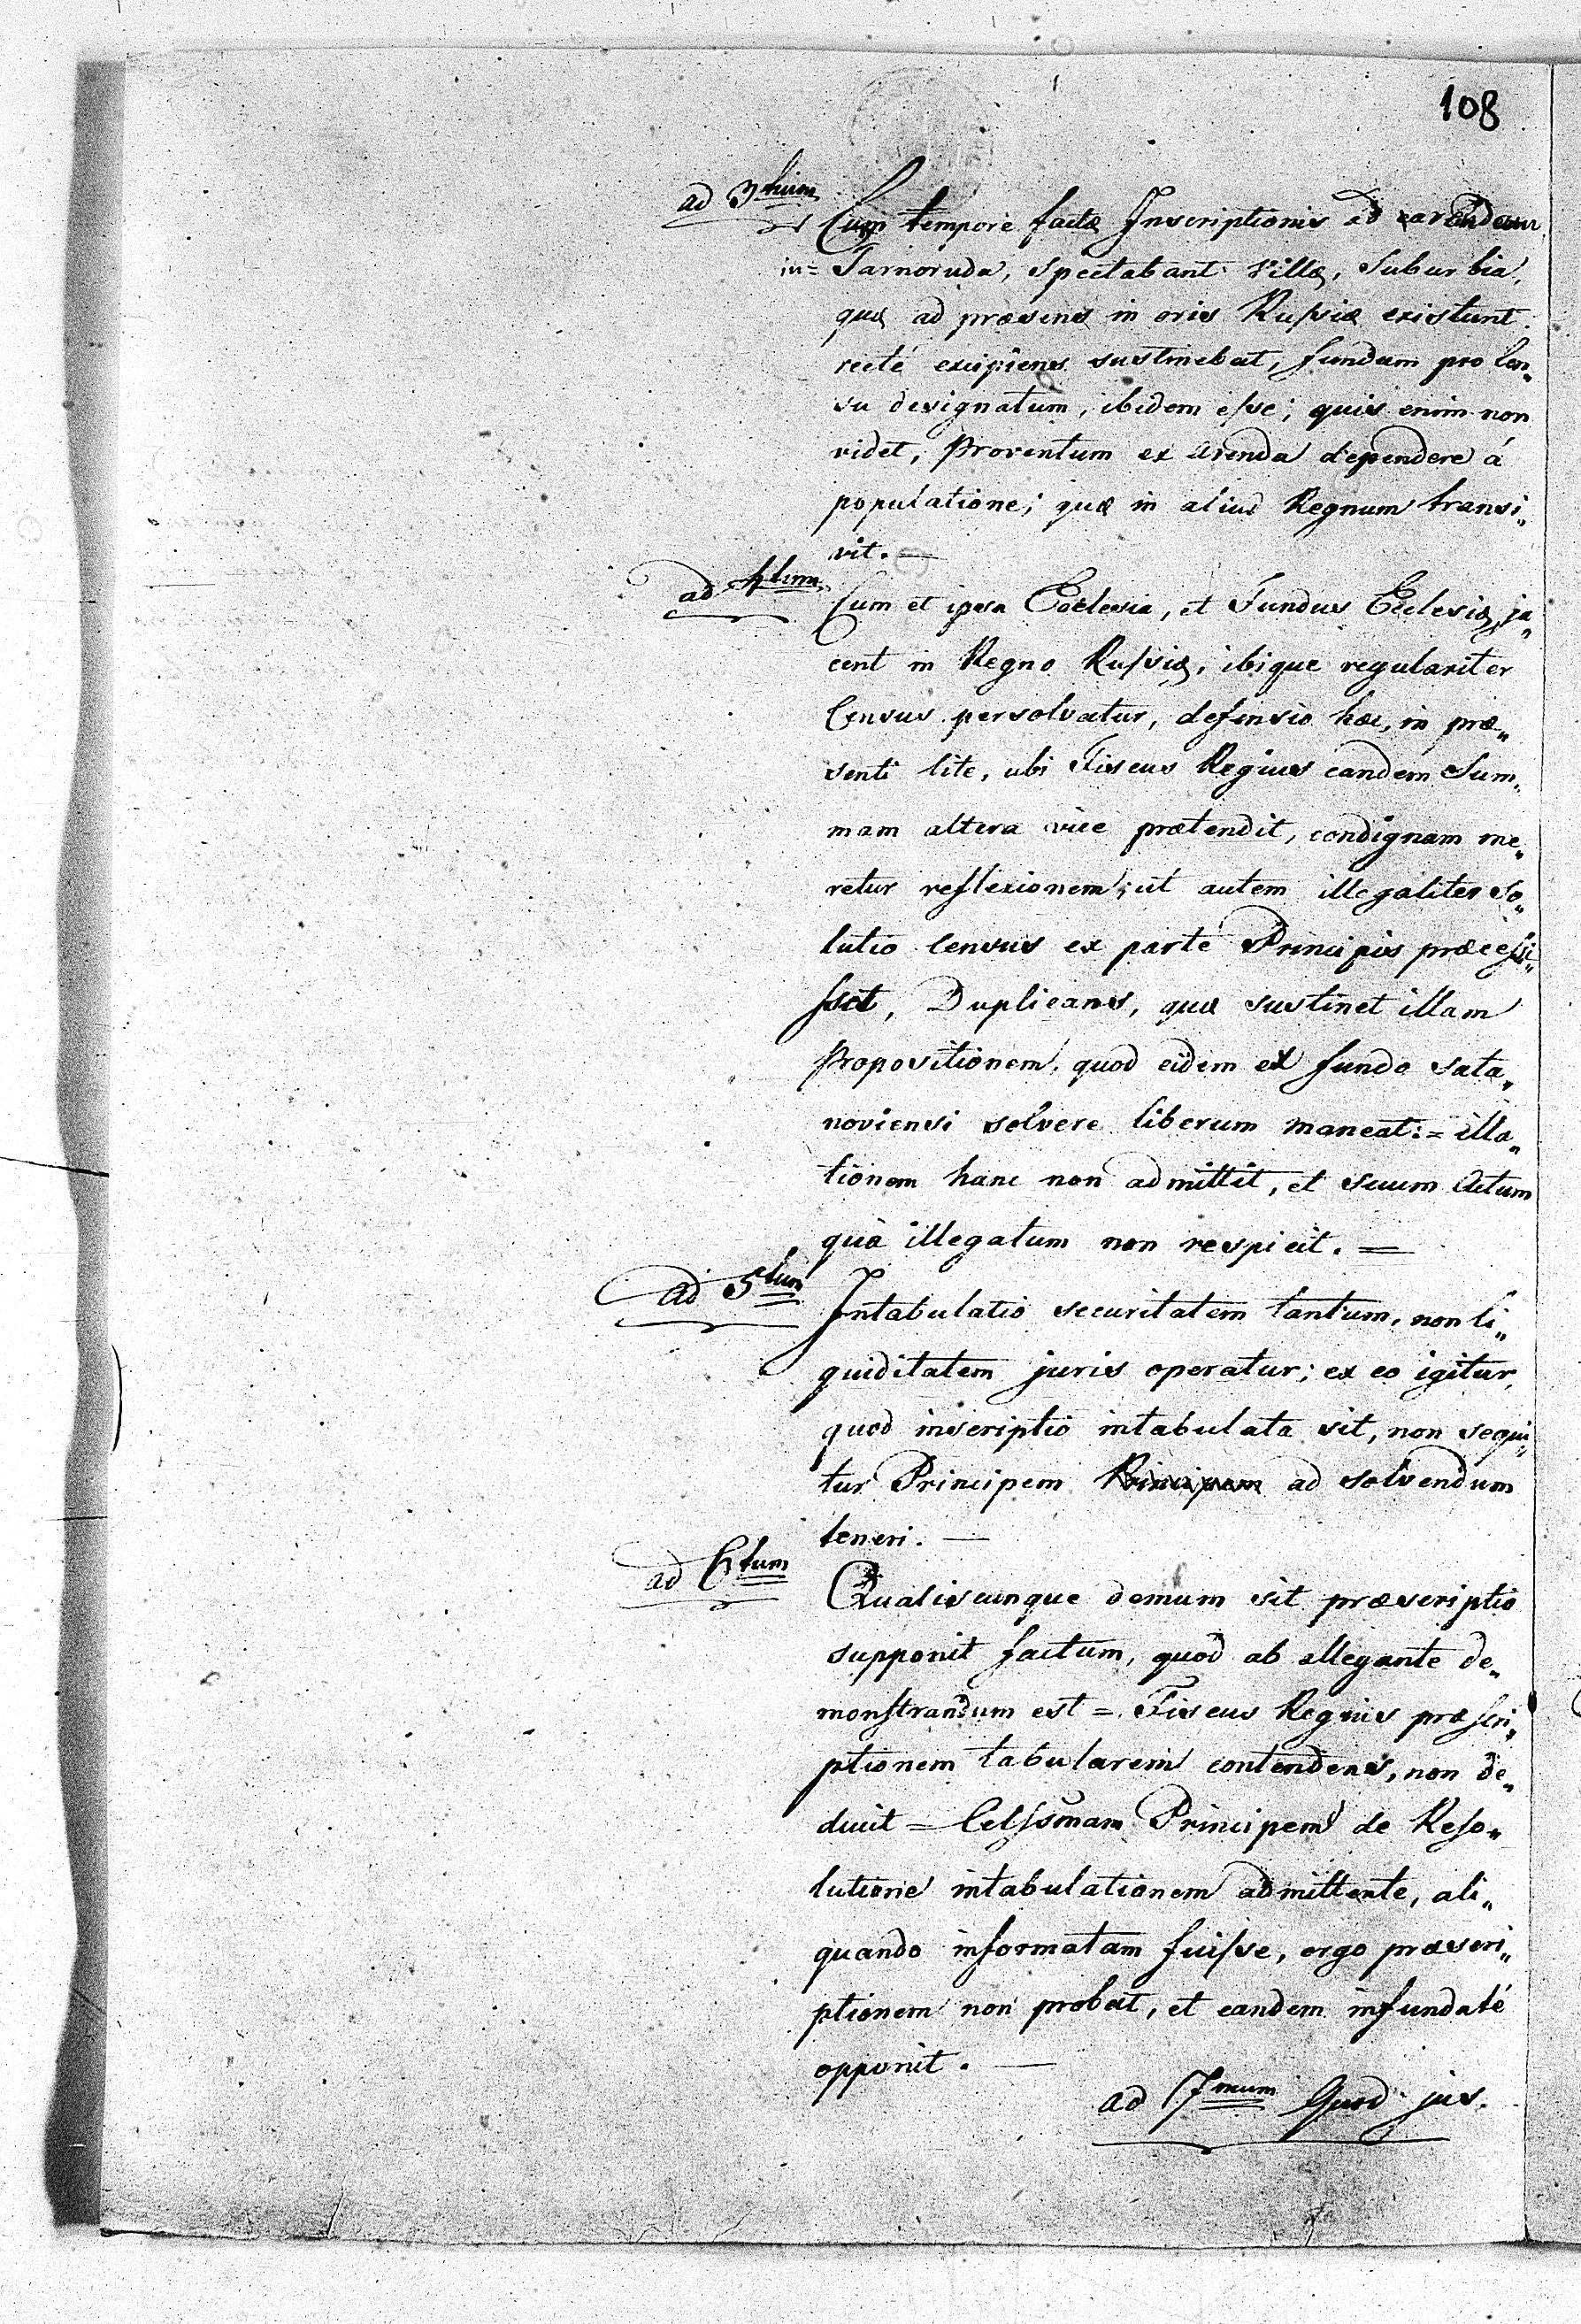 108
ad 3tium Cum tempore factæ Inscriptionis ad arendam
in= Tarnoruda, spectabant villæ, suburbia,
quæ ad præsens in oris Russiæ existunt.
recté excipiens sustinebat, fundum pro Cen„
su designatum, ibidem esse; quis enim non
videt, Proventum ex Arenda dependere á
populatione; quæ in aliud Regnum transi„
vit. —
ad 4tum Cum et ipsa Ecclesia, et Fundus Ecclesiæ, ja„
cent in Regno Russiæ, ibique regulariter
Census persolvatur, defensio hæc, in præ„
senti lite, ubi Fiscus Regius eandem Sum„
mam altera vice prætendit, condignam me„
retur reflexionem; ut autem illegaliter So„
lutio Census ex parte Principis præcessi„
sset, Duplicans, quæ sustinet illam
Propositionem, quod eidem ex fundo Sata„
noviensi solvere liberum maneat: = illa„
tionem hanc non admittit, et suum Actum
quà illegatum non respicit. =
ad 5tum Intabulatio securitatem tantum, non li„
quiditatem juris operatur; ex eo igitur,
quod inscriptio intabulata sit, non sequi„
tur Principem Principem ad solvendum
teneri. —
ad 6tum Qualiscunque demum sit præscriptio
supponit factum, quod ab allegante de„
monstrandum est = Fiscus Regius præscri„
ptionem tabularem contendens, non de„
duxit = Celssmam Principem de Reso„
lutione intabulationem admittente, ali„
quando informatam fuisse, ergo præscri„
ptionem non probat, et eandem infundaté
opponit. —
ad 7mum Quod jus.